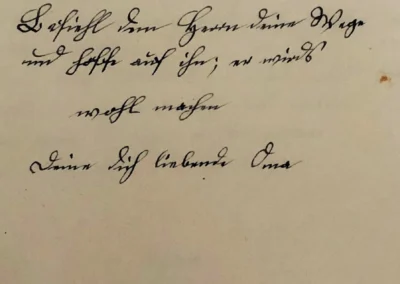 Befiehl dem Herrn deine Wege
und hoffe auf ihn; er wirds
wohl machen
Deine dich liebende Oma